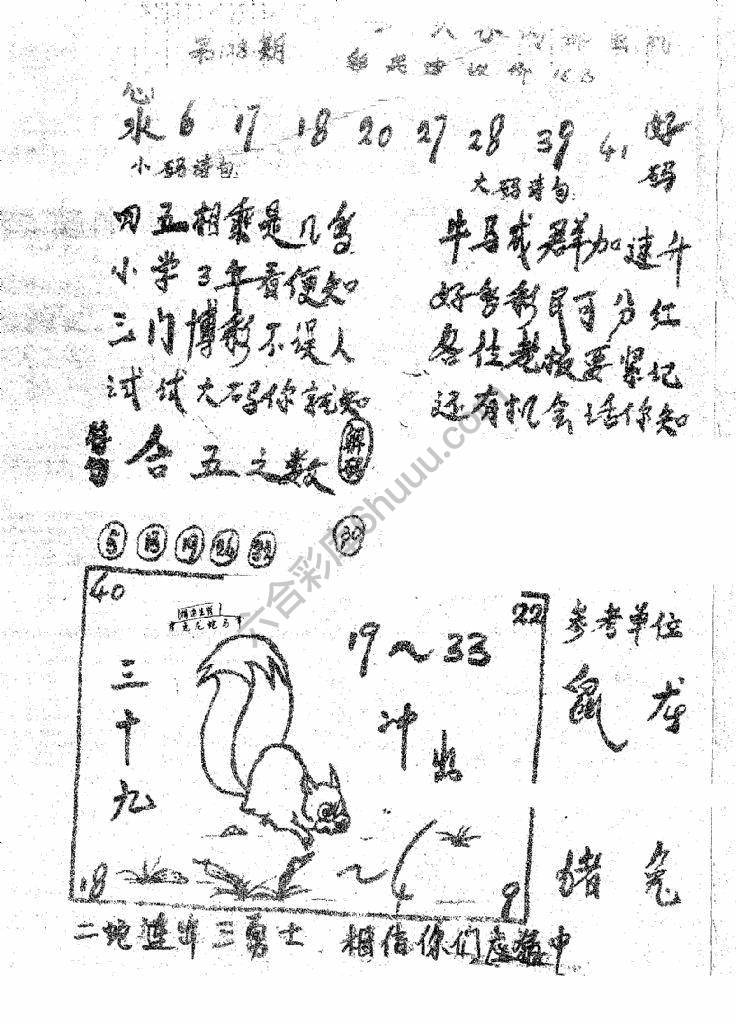 第128期
心水 6 17 18 20 27 28 39 41 好码
小码诗句
大码诗句
四五相乘是几多
小学3年看便知
三门博彩不误人
试试大码你就知
牛马成群加速升
好多彩民可分红
各位老板要紧记
还有机会话你知
合五之数
解
40
22
兔龙蛇马
三十九
19~33
冲出
参考单位
鼠 龙
猪 兔
18
9
二蛇进出三勇士 相信你们应猛中
六合彩库6huuu.com